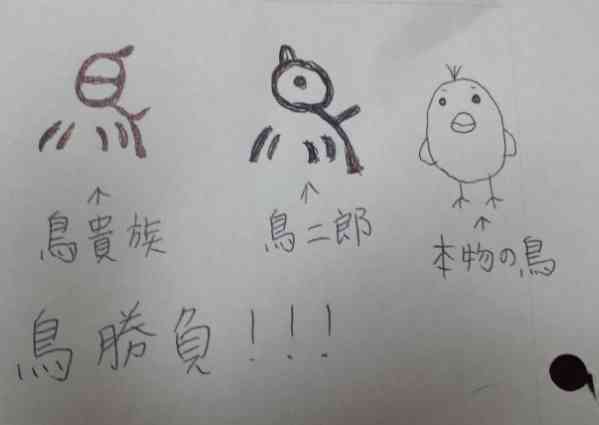 鳥貴族
鳥二郎
本物の鳥
鳥勝負!!!